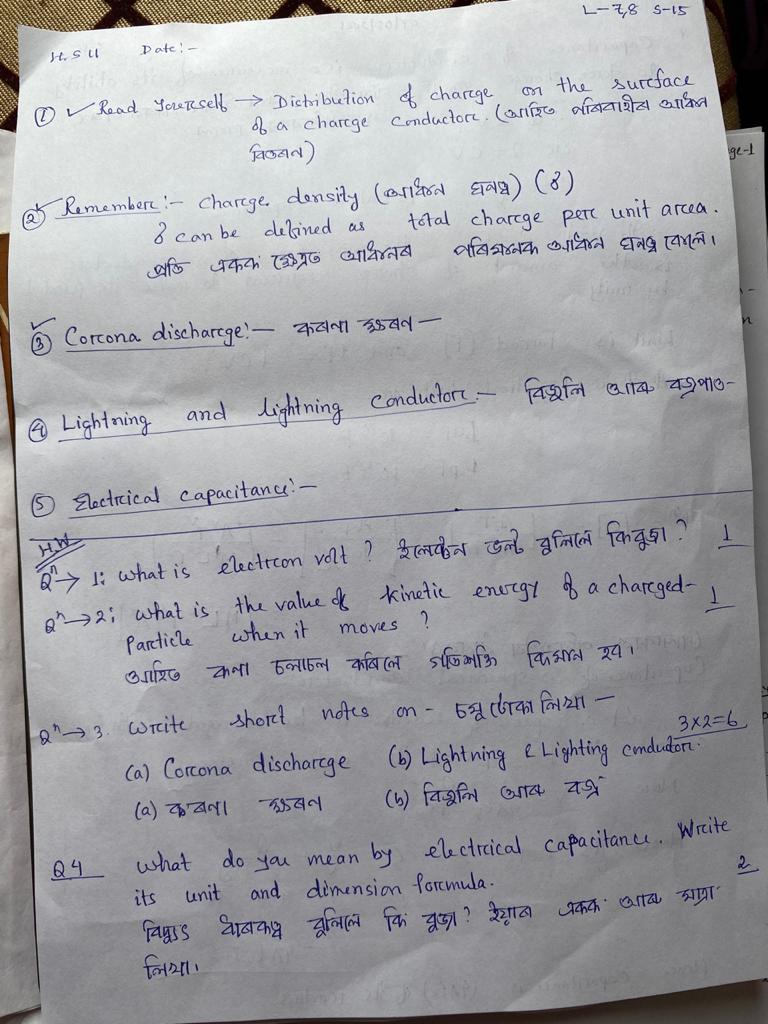 L-7,8 S-15
H.S 11 Date:-
① ✓ Read Yourself → Distribution of charge on the surface
of a charge conductor. (আহিত পৰিবাহীৰ আধান
বিতৰন)
② Remember:- Charge density (আধান ঘনত্ব) (δ)
δ can be defined as total charge per unit area.
প্ৰতি একক ক্ষেত্ৰত আধানৰ পৰিমানক আধান ঘনত্ব বোলে।
③ Corona discharge:- কৰনা ক্ষৰন —
④ Lightning and lightning conductor:- বিজুলি আৰু বজ্ৰপাত-
⑤ Electrical capacitance:-
H.W
Qⁿ→ 1: What is electron volt? ইলেকট্ৰন ভল্ট বুলিলে কি বুজা? 1
Qⁿ→2: What is the value of kinetic energy of a charged- 1
Particle when it moves?
আহিত কনা চলাচল কৰিলে গতিশক্তি কিমান হব।
Qⁿ→3. Write short notes on - চমু টোকা লিখা —
3×2=6
(a) Corona discharge (b) Lightning & Lighting conductor.
(a) কৰনা ক্ষৰন (b) বিজুলি আৰু বজ্ৰ
Q4 What do you mean by electrical capacitance. Write
its unit and dimension formula. 2
বিদ্যুৎ ধাৰকত্ব বুলিলে কি বুজা? ইয়াৰ একক আৰু মাত্ৰা
লিখা।
ge-1